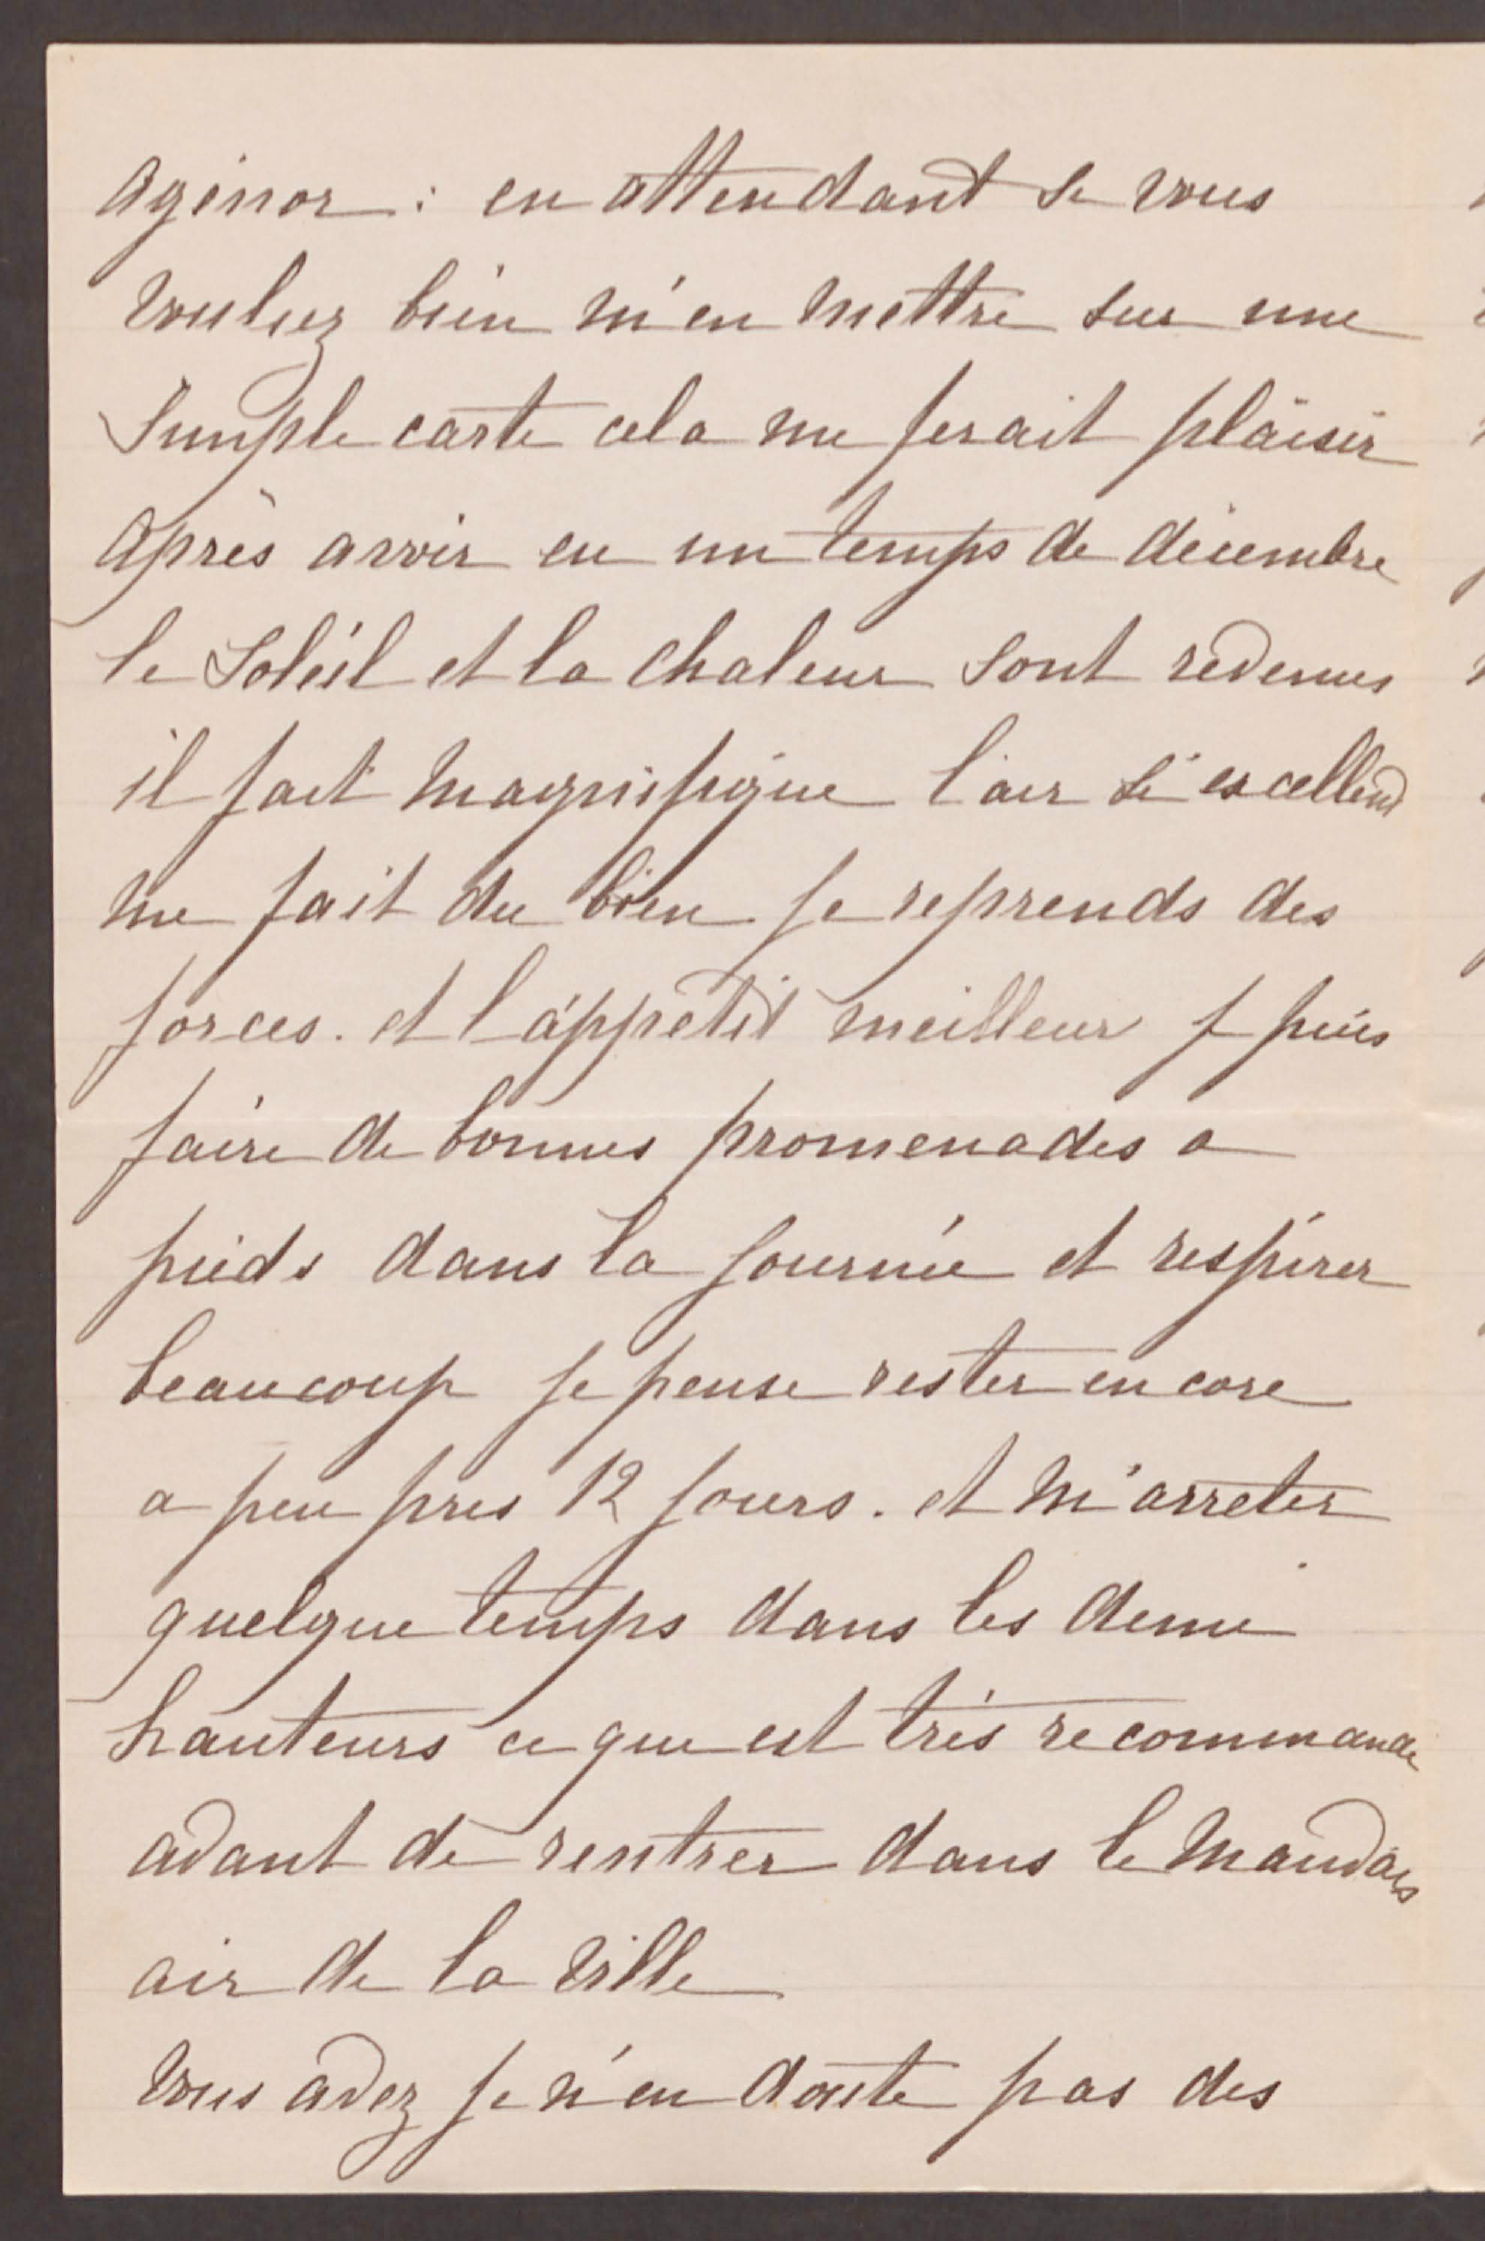 Agénor : en attendant si vous
vouliez bien m'en mettre sur une
Simple carte cela me ferait plaisir
Après avoir eu un temps de décembre
le Soleil et la chaleur sont revenus
il fait magnifique l'air si excellent
me fait du bien je reprends des
forces. et l'appétit meilleur je puis
faire de bonnes promenades a
pieds dans la journée et respirer
beaucoup je pense rester encore
a peu pres 12 jours. et m'arreter
quelque temps dans les demi
hauteurs ce que est très recommandé
avant de rentrer dans le mauvais
air de la ville
Vous avez je n'en doute pas des